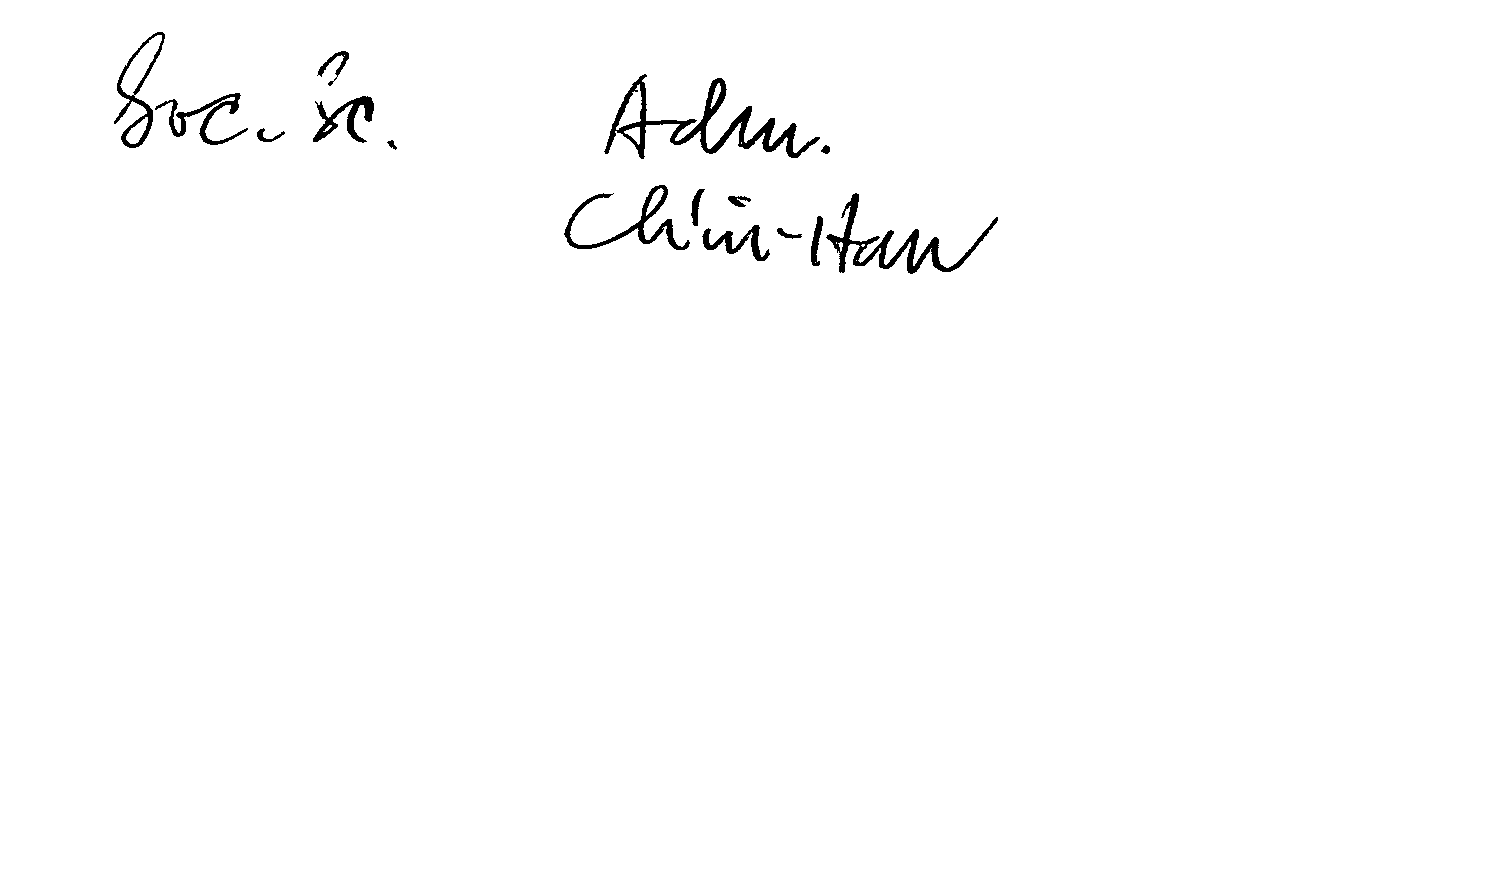 Soc. Sc. Adm.
Ch'in-Han